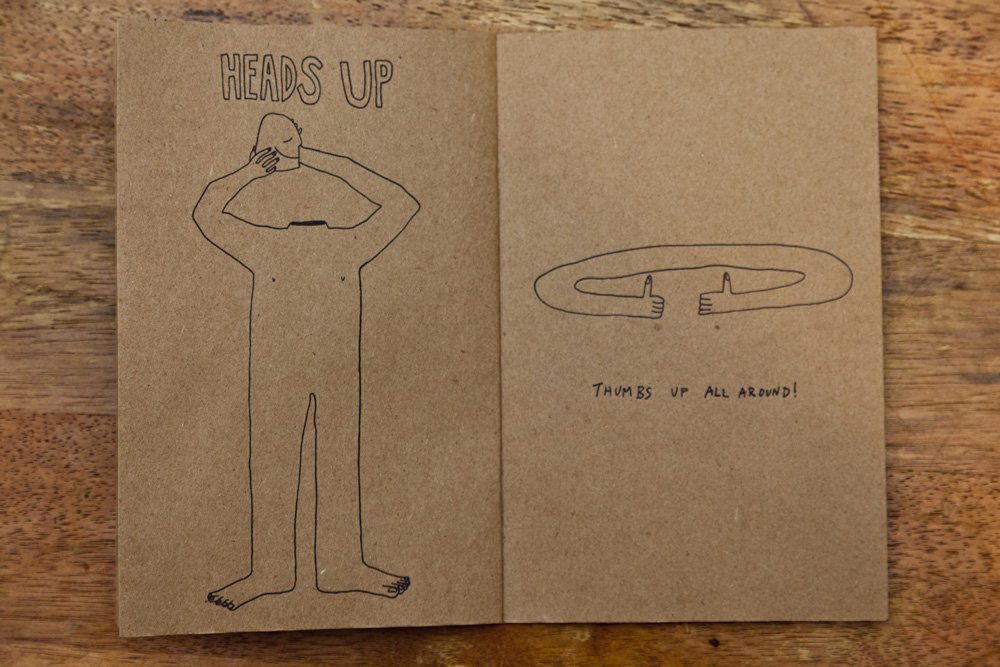 HEADS UP
THUMBS UP ALL AROUND!